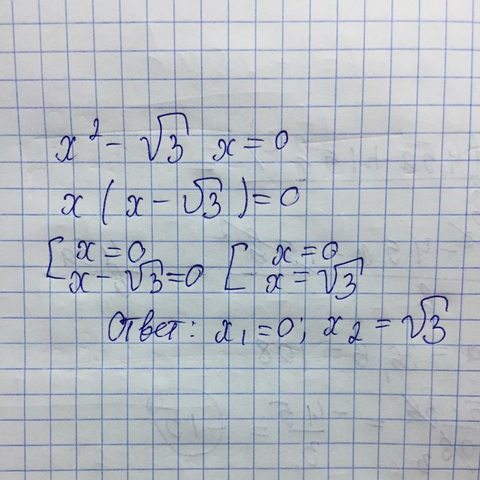 x² - √3 x = 0
x ( x - √3 ) = 0
[ x = 0 [ x = 0
x - √3 = 0 x = √3
Ответ: x₁ = 0; x₂ = √3